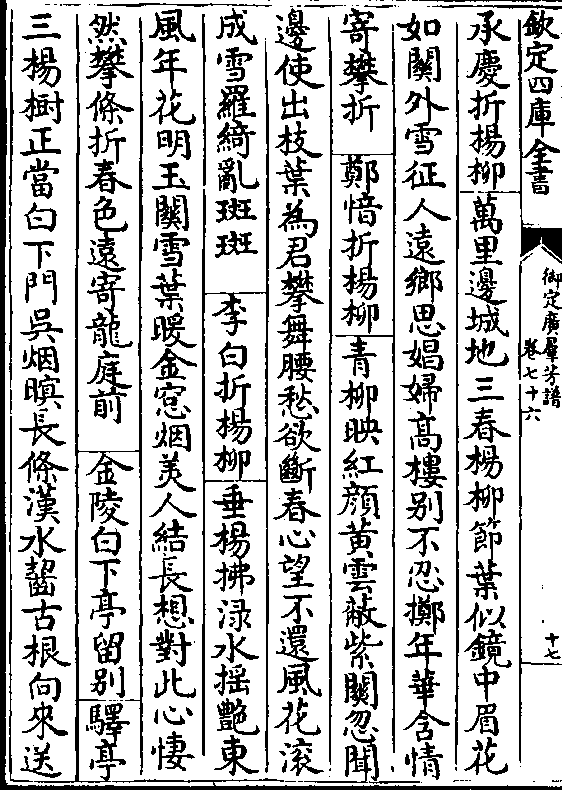 欽定四庫全書
御定廣羣芳譜
卷七十六
十七
承慶折楊柳 萬里邊城地三春楊柳節葉似鏡中眉花
如關外雪征人遠鄉思娼婦高樓别不忍擲年華含情
寄攀折 鄭愔折楊柳 青柳映紅顔黄雲蔽紫關忽聞
邊使出枝葉為君攀舞腰愁欲斷春心望不還風花滚
成雪羅綺亂斑斑 李白折楊柳 垂楊拂渌水揺艷東
風年花明玉關雪葉暖金窓烟美人結長想對此心悽
然攀條折春色遠寄龍庭前 金陵白下亭留别 驛亭
三楊樹正當白下門吳烟暝長條漢水齧古根向來送